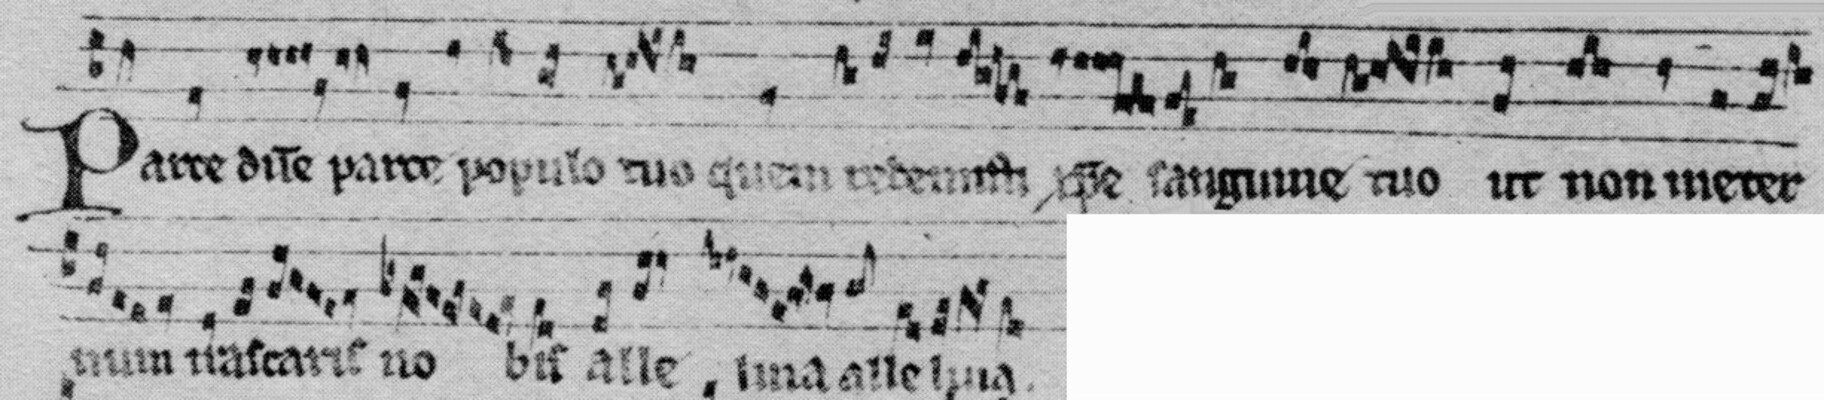 Parce dn̄e parce populo tuo quem redemisti xp̄e sanguine tuo ut non in eter
num irascaris nobis alle luia alleluia.